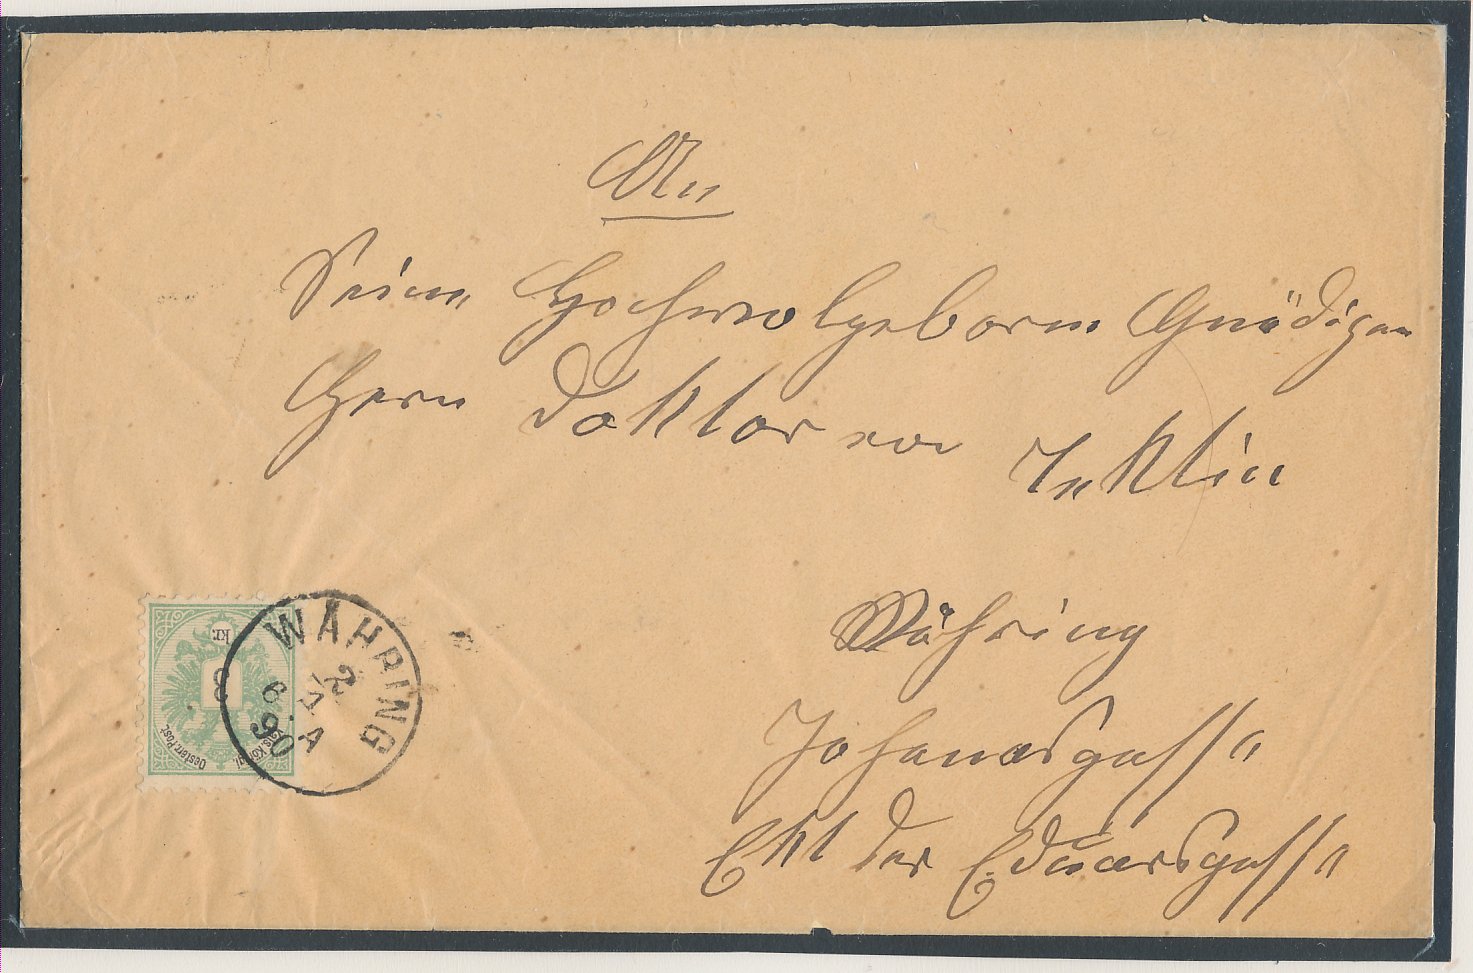 An
Seine Hochwolgeboren Gnädigen
Herrn Doktor von
Währing
Johanesgasse
Ekt der Eduardsgasse
WÄHRING
2
7
6. A
90
kr.
Oesterr. Post.